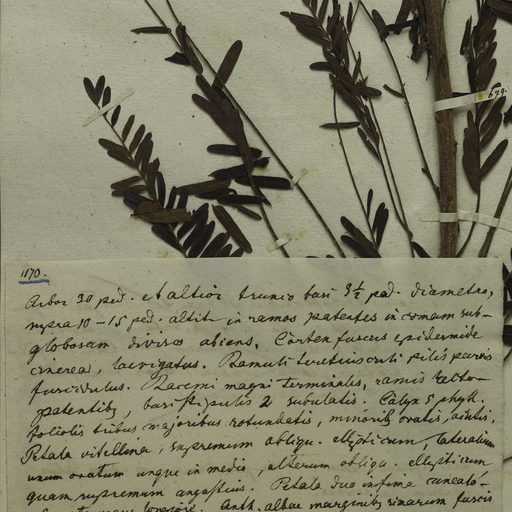 679.
1170.
Arbor 20 ped. et altior trunco basi 3½ ped. diametro,
supra 10 - 15 ped. altit. in ramos patentes in comam sub-
globosam divisos abiens, Cortex fuscus epidermide
cinerea, laevigatus. Ramuli teretiusculi pilis parvis
furcidulus. Racemi magni terminales, ramis recto-
patentib, basi stipulis 2 subulatis. Calyx 5 phyll.
foliolis tribus majoribus rotundatis, minorib ovatis, acutis,
Petala vitellina, supremum obliqu. ellipticum, lateralium
unum ovatum ungue in medio, alterum obliqu. ellipticum
quam supremum angustius. Petala duo infima cuneato-
Anth. albae marginib rimarum fuscis